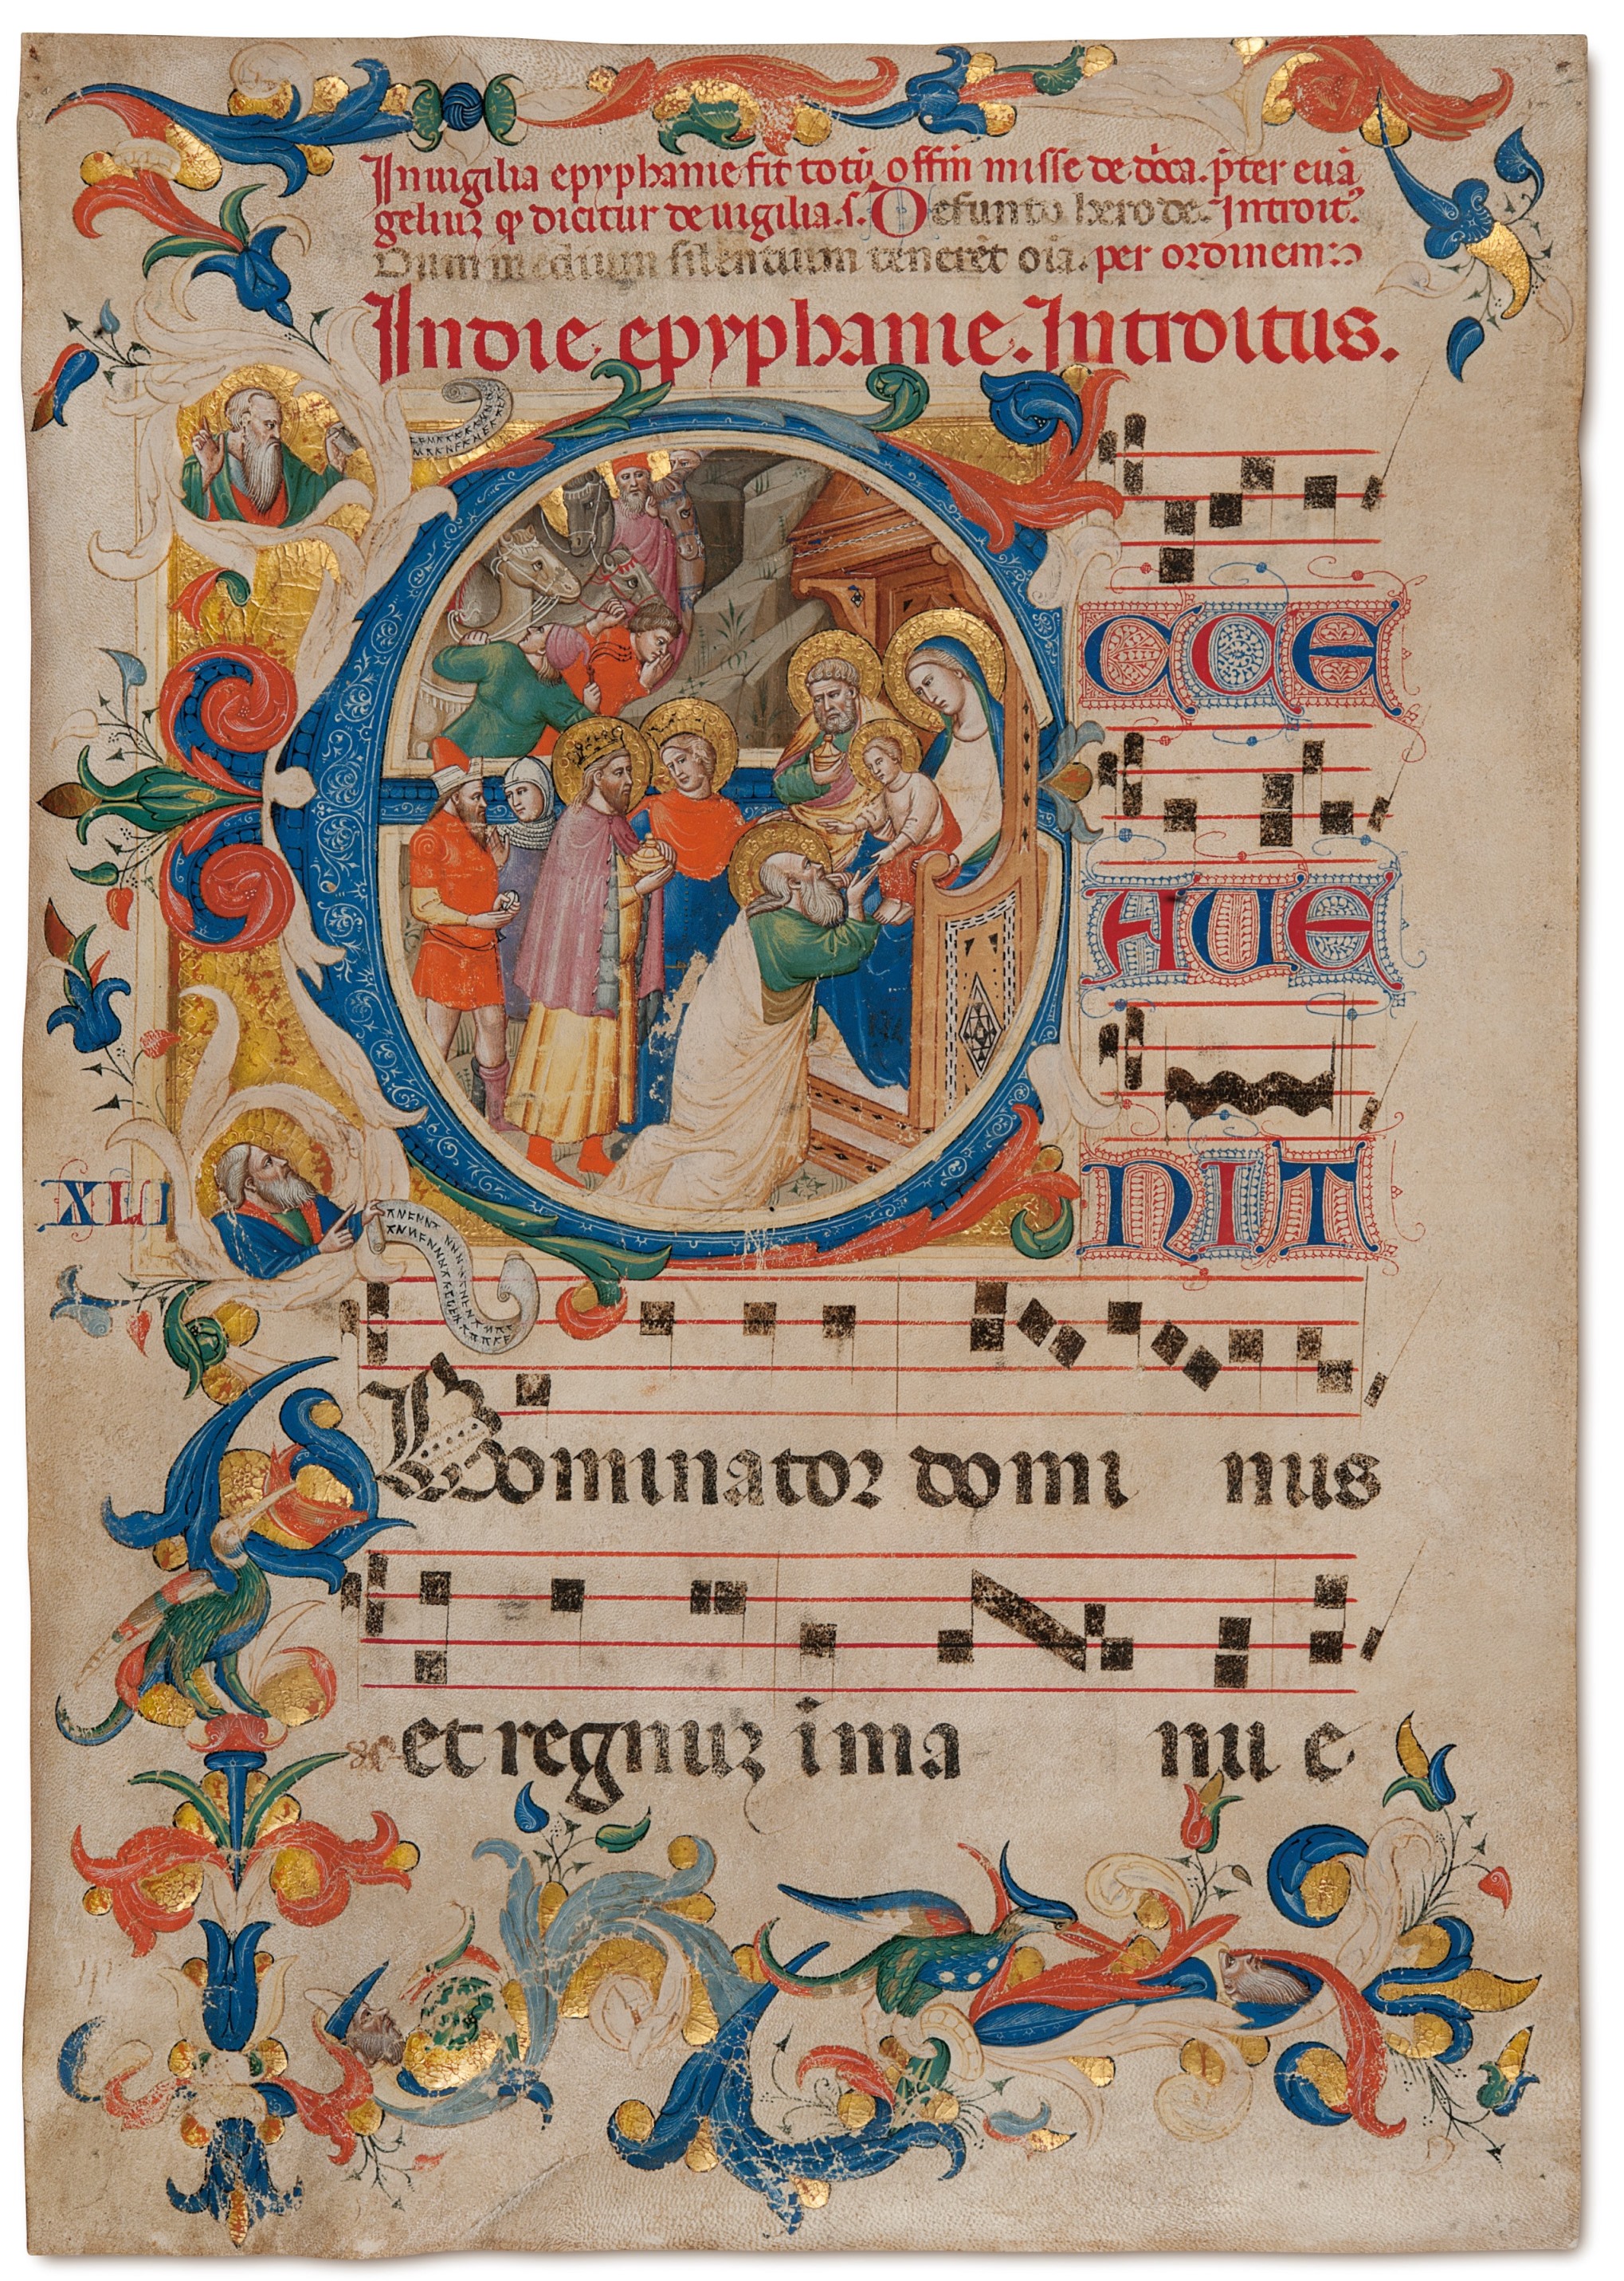 In uigilia epyphanie fit totũ offm̃ misse de dñca. p̃ter euã
geliuʒ qͥ dicitur de uigilia. s. Defuncto herode. Introitꝰ.
Dum medium silentium teneret oĩa. per ordinem:
In die epyphanie. Introitus.
ECCE
AUE
NIT
XLI
Dominator domi nus
et regnuʒ i ma nu e